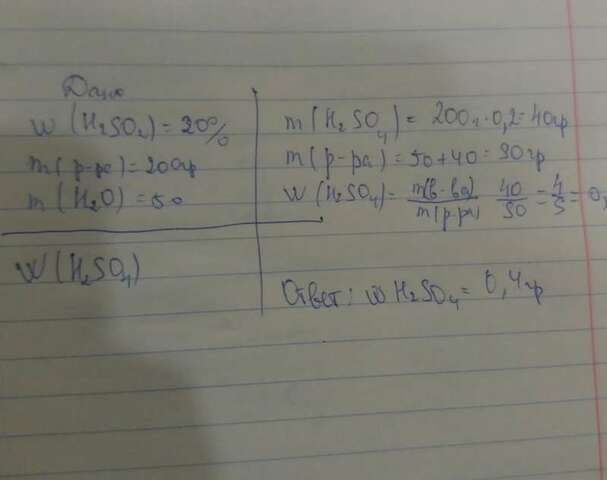 Дано
w (H₂SO₄) = 20%
m(р-ра) = 200гр
m (H₂O) = 50
W (H₂SO₄)
m (H₂SO₄) = 200г·0,2=40гр
m(р-ра) = 50+40=90гр
W (H₂SO₄)= m(в-ва)/m(р-ра) 40/90=4/9=0,
Ответ: w H₂SO₄= 0,4гр